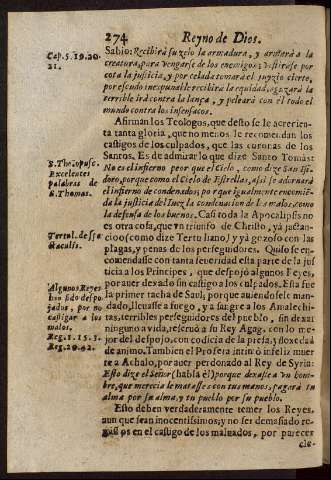 274 Reyno de Dios.
Cap. 5. 19. 20.
21.
Sabio: Recibirà su zelo la armadura, y armarà a la
creatura, para vengarse de los enemigos: vestirase por
cota la justicia, y por celada tomarà el juyzio cierto,
por escudo inexpunable recibira la equidad, aguzarà la
terrible ira contra la lança, y peleará con èl todo el
mundo contra los insensatos.
Afirman los Teologos, que desto se le acrecien-
ta tanta gloria, que no menos le recomiendan los
castigos de los culpados, que las coronas de los
S. Theo
Excelentes
palabras de
S. Thomas.
Santos. Es de admirar lo que dize Santo Tomàs:
No es el infierno peor que el Cielo, como dize San Isi-
doro, como el Cielo de Estrellas, assi se adornarà
el infierno de condenados; porque igualmente encomiē-
da la justicia del Iuez la condenacion de los malos, como
la defensa de los buenos. Casi toda la Apocalipsis no
es otra cosa, que un triunfo de Christo, yà
Tertul. de
tacalis.
cioso (como dize Tertuliano) y yà gozoso con las
plagas, y penas de los perseguidores. Quiso se en-
comendasse con tanta severidad esta parte de la jus-
ticia a los Principes, que despojò algunos Reyes,
Algunos Reyes
han sido despo
jados, por no
castigar a los
malos.
Reg. 1. 15. 3.
Reg. 20. 42.
por aver dexado sin castigo a los culpados. Esta fue
la primer tacha de Saul; porque aviendosele man-
dado, llevasse a fuego, y a sangre a los Amaleci-
tas, terribles perseguidores del pueblo, sin dexar
ninguno a vida, reservò a su Rey Agag, con lo me-
jor del despojo, con codicia de la presa, y floxedad
de animo. Tambien el Profeta intimò infeliz muer-
te a Achab, por aver perdonado al Rey de Syria:
Esto dize el Señor (habla èl) porque dexaste a un hom-
bre, que merecia le matasse con tus manos, pagarà tu
alma por su alma, y tu pueblo por su pueblo.
Esto deben verdaderamente temer los Reyes,
aun que sean inocentissimos; y no ser demasiado re-
gusos en el castigo de los malvados, por parecer
cle-